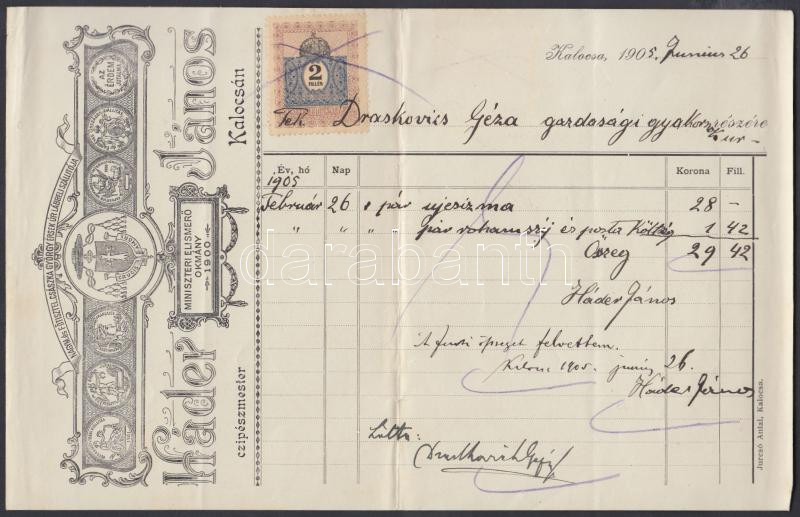 NAGYMÉLT. ÉS FŐTISZTEL. CSÁSZKA GYÖRGY ÉRSEK ÚR LÁBBELI SZÁLLITÓJA
AZ ÉRDEM JUTALMA
Háder János
MINISZTERI ELISMERŐ
OKMÁNY
1900
czipészmester Kalocsán
2
FILLÉR
Kalocsa, 1905. Junius 26
Tek. Draskovics Géza gazdasági gyakornok részére
ur –
Év, hó Nap Korona Fill.
1905
Február 26 1 pár uj csizma 28 –
" " " pár rohamszij és posta Költség 1 42
Öszeg 29 42
Háder János
A fenti öszeget felvettem.
Kalocsa 1905 junius 26.
Háder János
Látta:
Draskovich Géza
Jurcsó Antal, Kalocsa.
darabanth